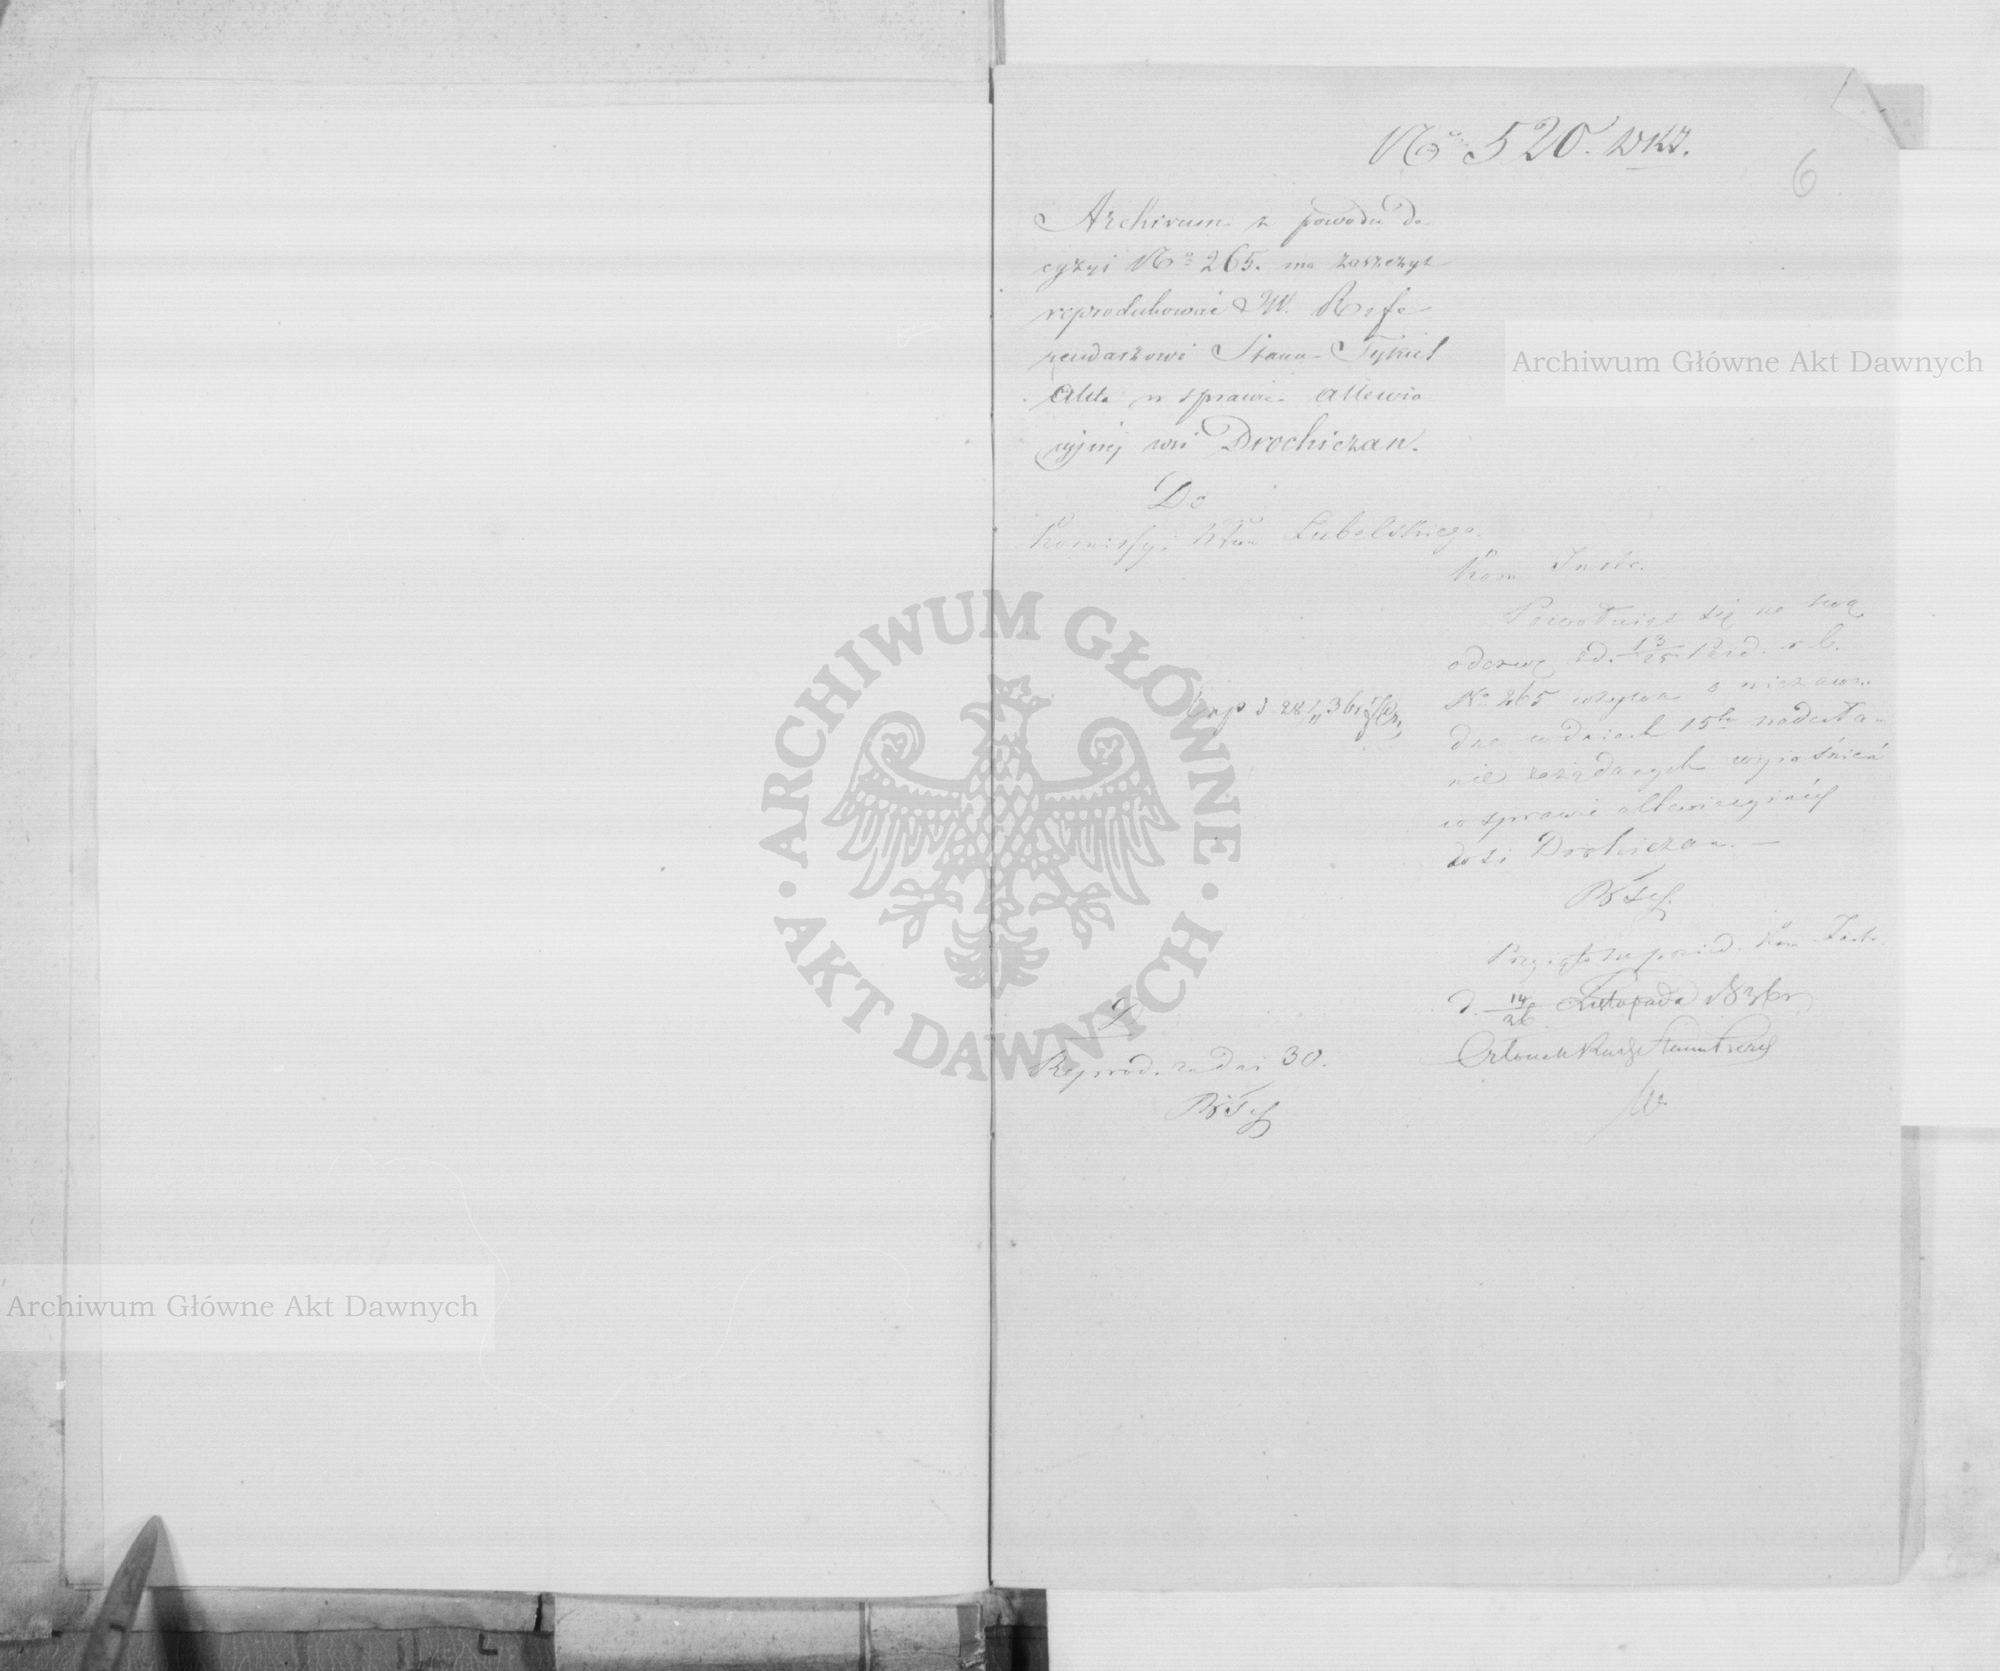 No 520. WKZ.
6
Archiwum z powodu de
cyzyi No 265. ma zaszczyt
reprodukować W. Refe
rendarzowi Stanu Tykiel
Akta w sprawie allewia
cyjnéj wsi Drochiczan.
Do
Kommissyi Wdwa Lubelskiego.
Kom Instr.
Powołując się na swą
odezwę z d. 13/25 Paźd. r. b.
No 265 wzywa o niezawo
dne w dniach 15tu nadesła
nie zażądanych wyjaśnień
w sprawie allewiacyjnéj
wsi Drohiczan. —
Exp d 28/11 36
Przyjęto na posied. Kom. Instr.
d. 14/26 Listopada 1836 r
Członek
D
Reprod. za dni 30.
ARCHIWUM GŁÓWNE
AKT DAWNYCH
Archiwum Główne Akt Dawnych
Archiwum Główne Akt Dawnych